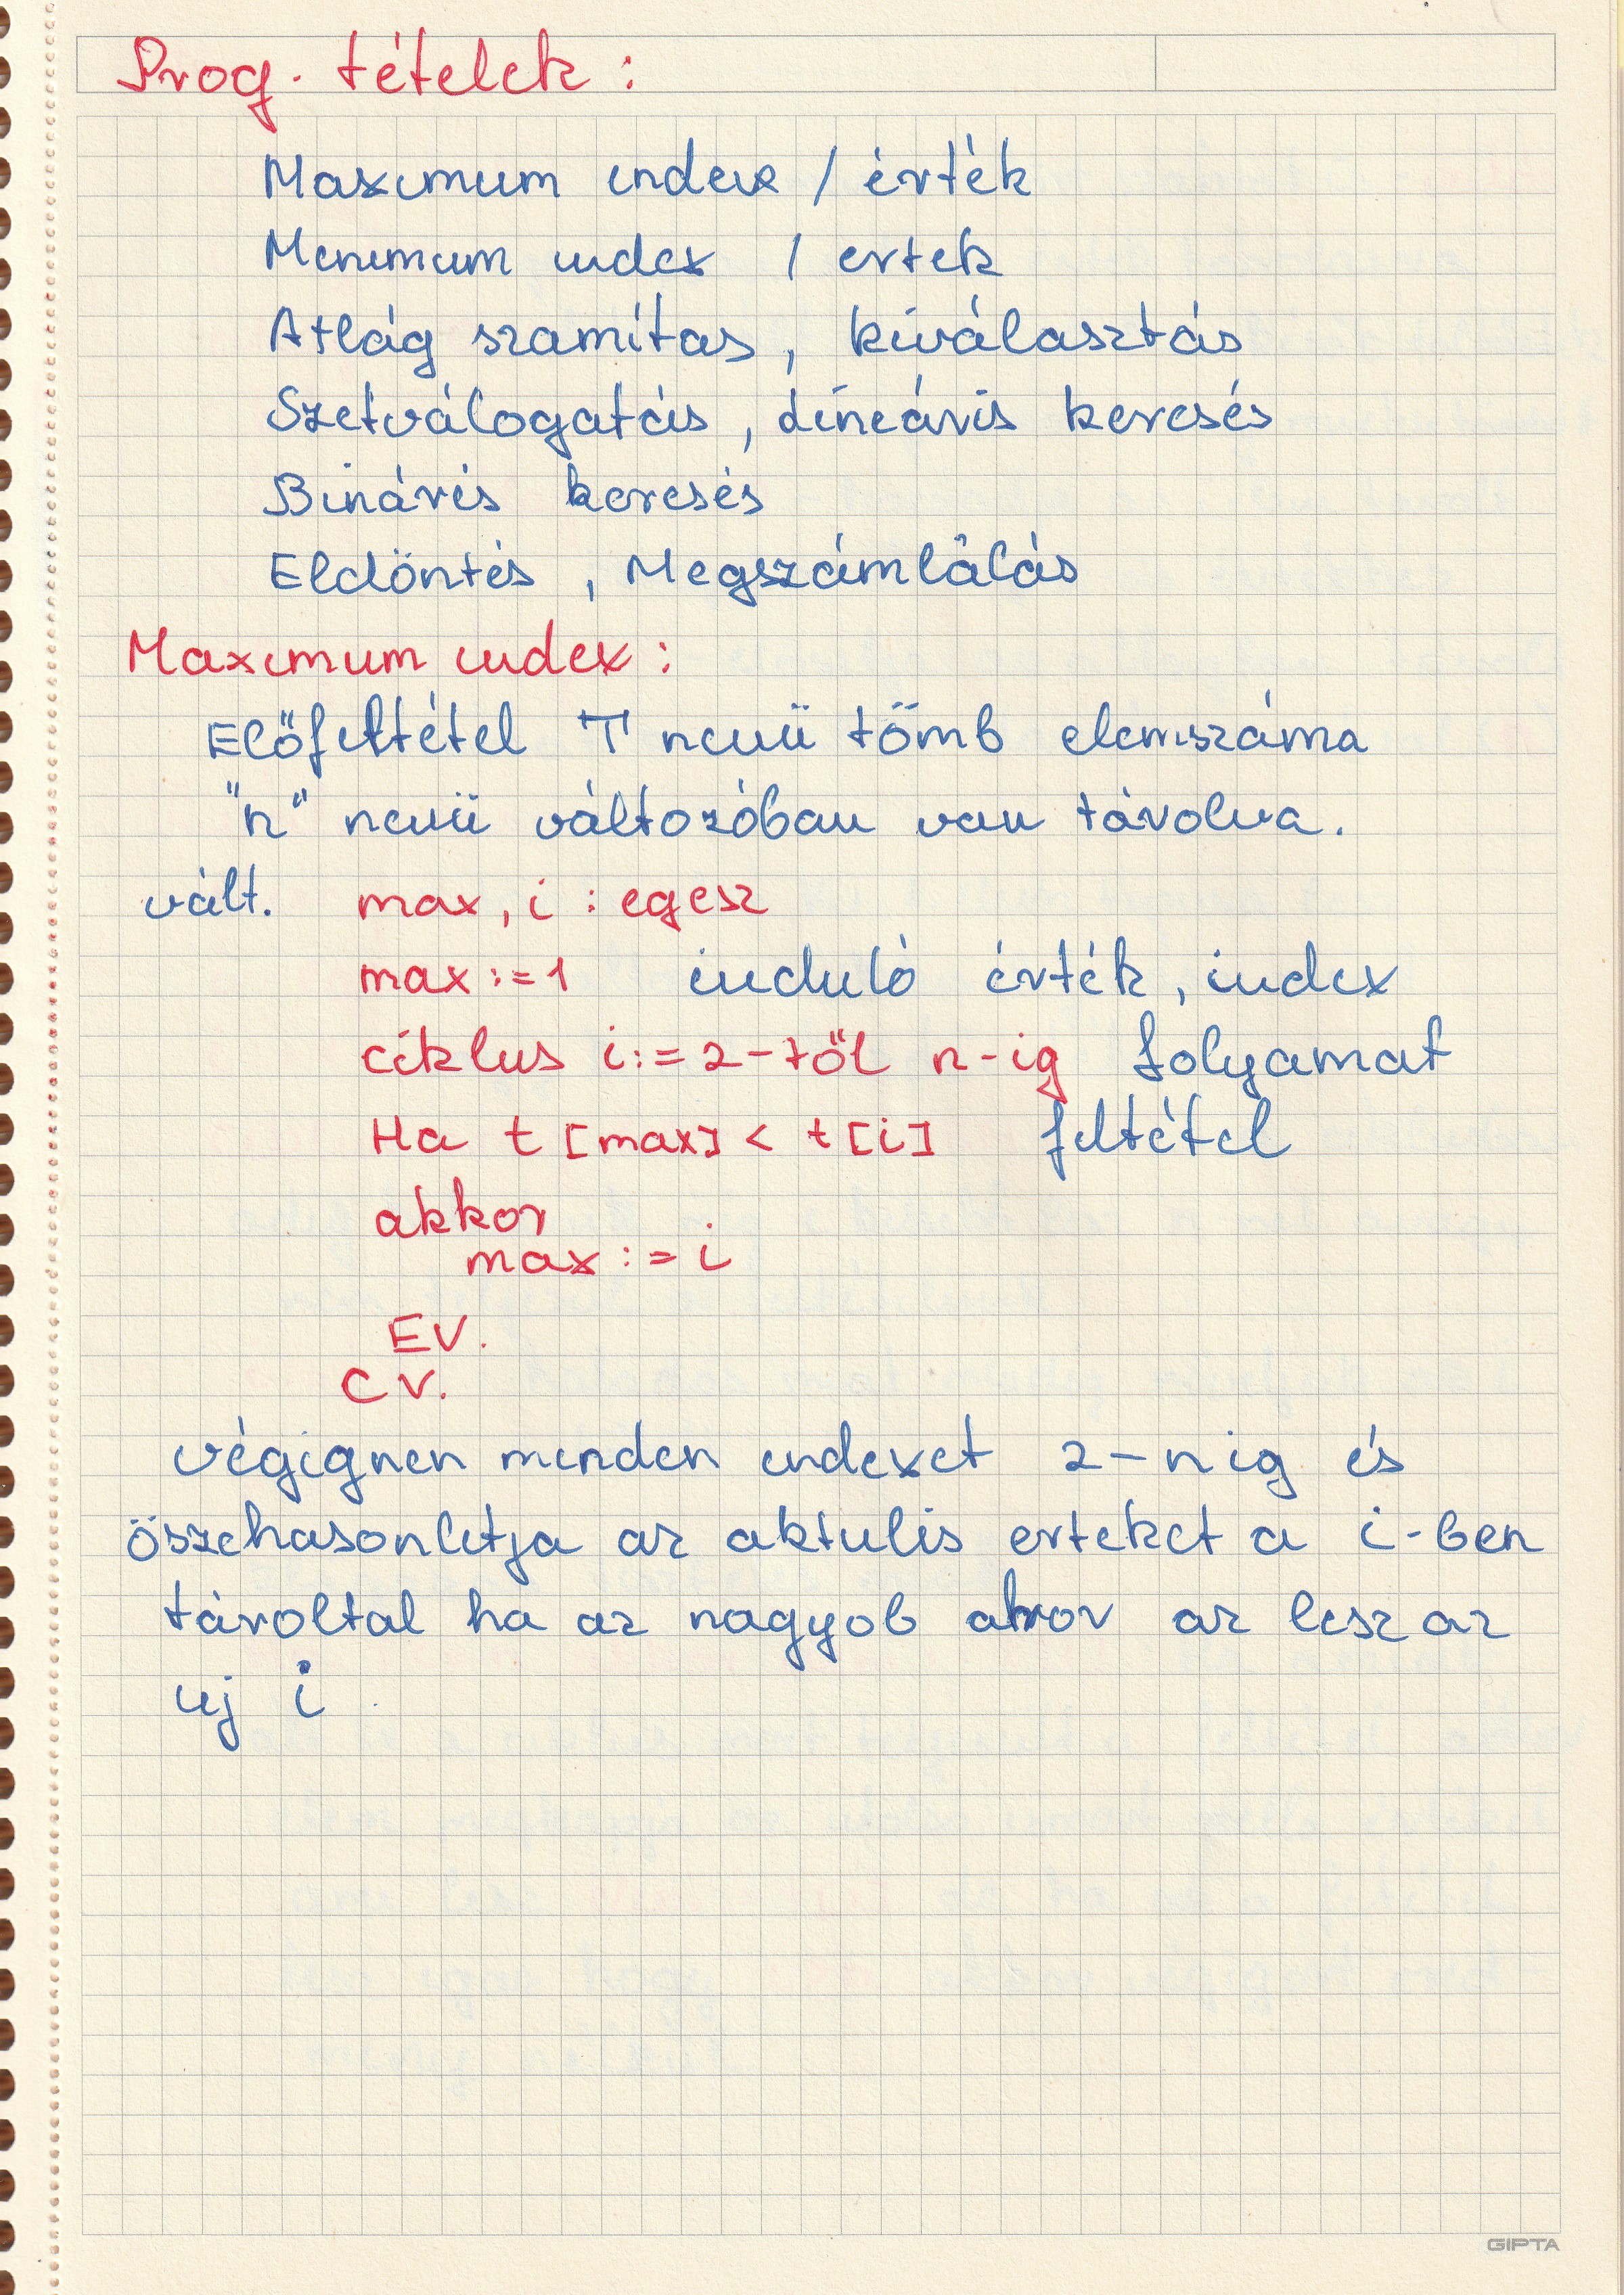 Prog. tételek :
Maximum index / érték
Minimum index / ertek
Atlág szamítas, kiválasztás
Szetválogatás, Lineáris keresés
Bináris keresés
Eldöntés, Megszámlálás
Maximum index :
Előfeltétel T nevű tömb elemszáma
"n" nevű változóban van tárolva.
vált. max, i : egesz
max := 1 induló érték, index
ciklus i := 2-től n-ig folyamat
Ha t [max] < t [i] feltétel
akkor
max := i
EV.
CV.
végignen minden indexet 2-nig és
öszehasonlitja az aktulis erteket a i-ben
tároltal ha az nagyob akor az lesz az
uj i
GIPTA